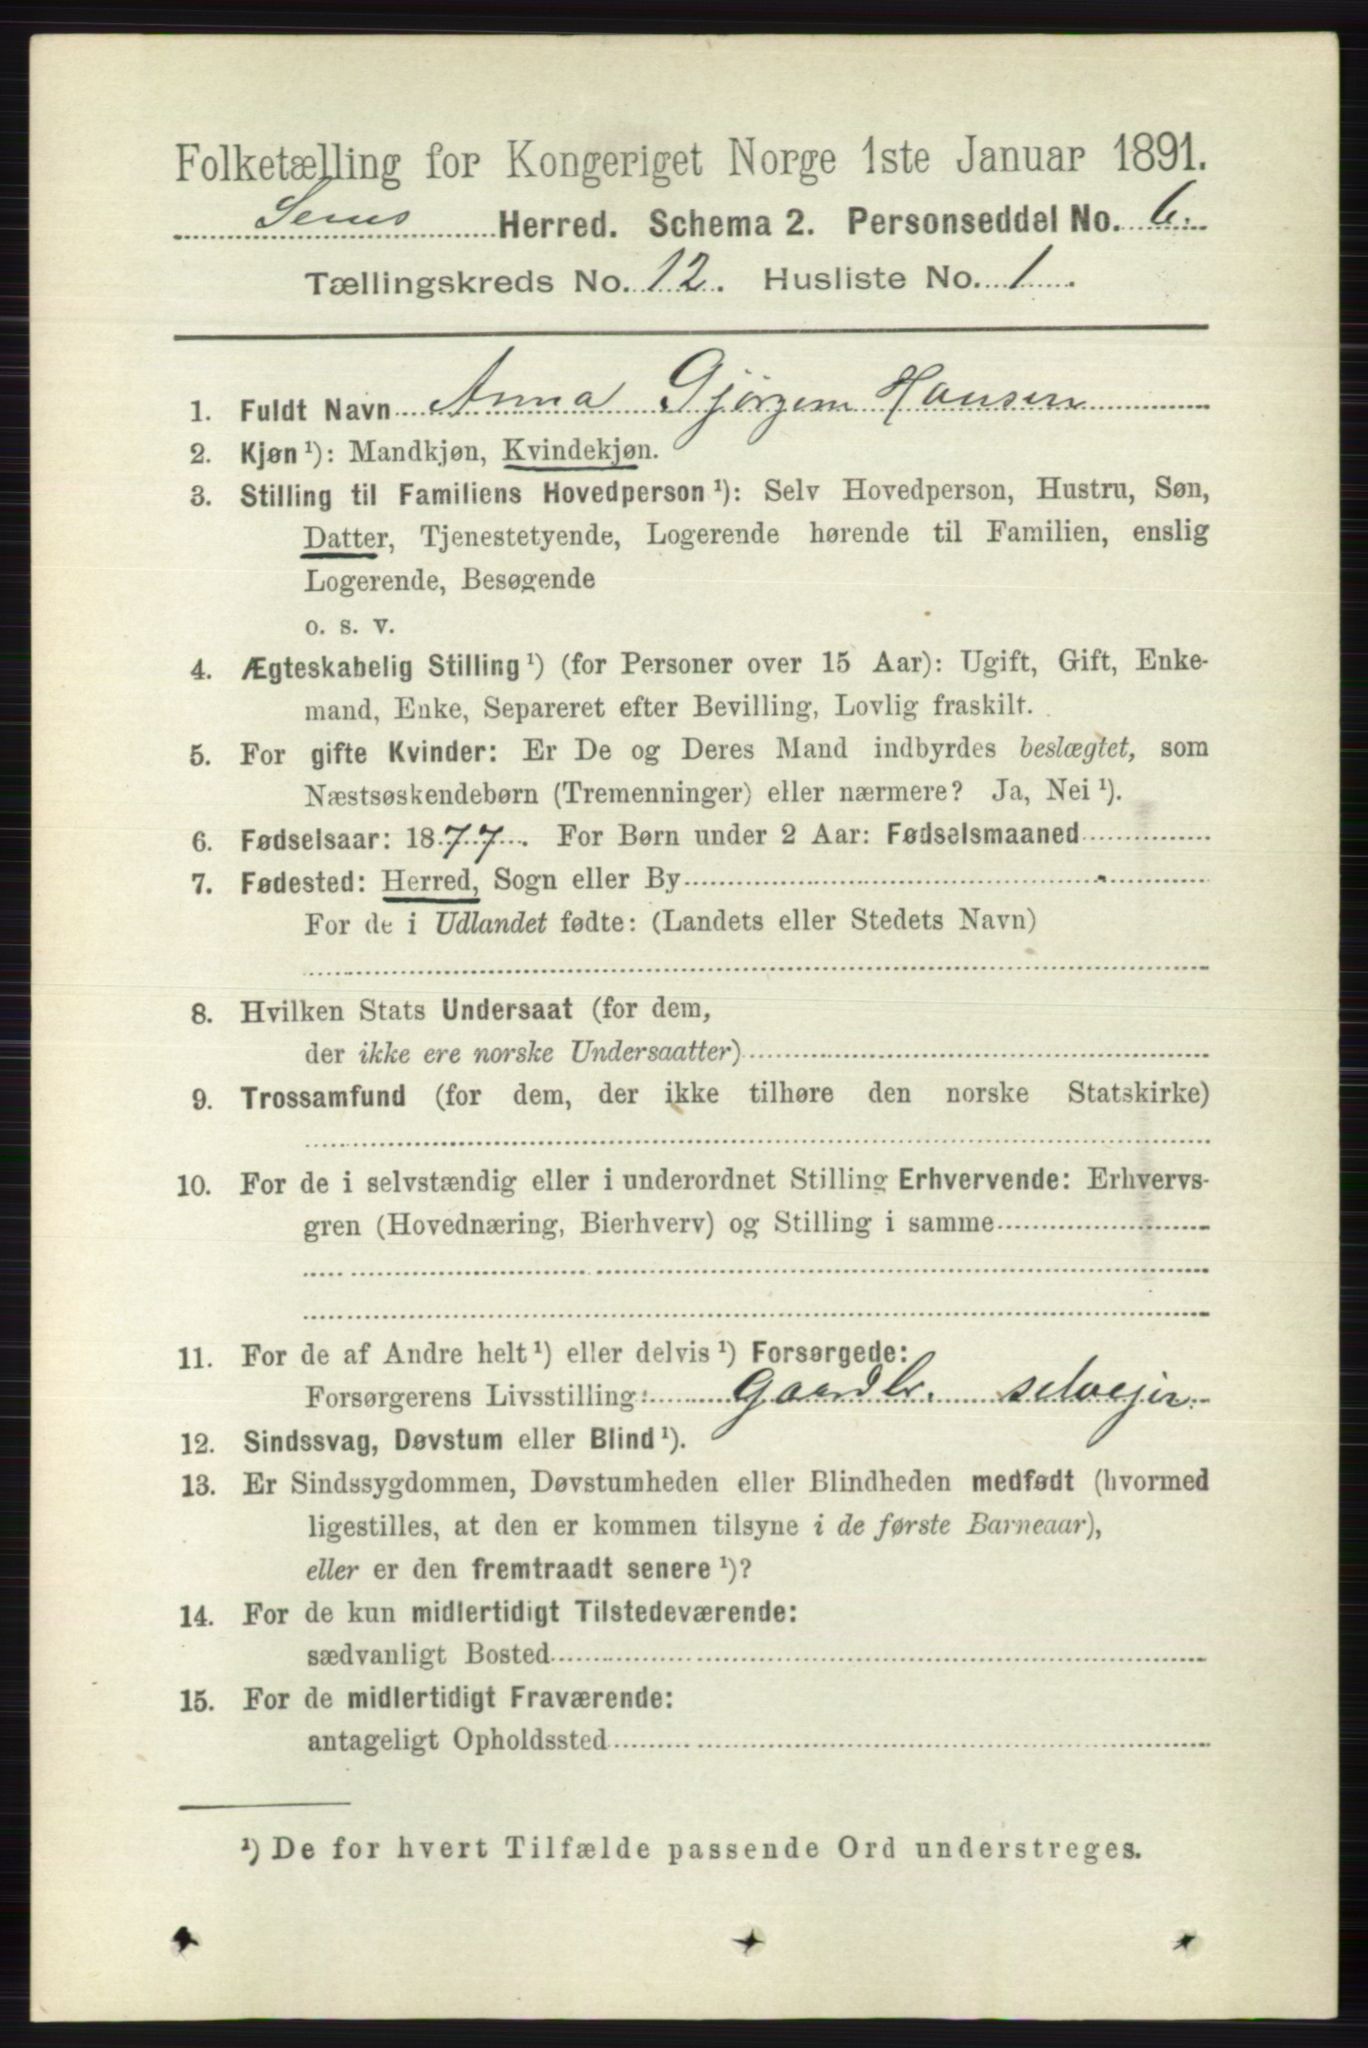 Folketælling for Kongeriget Norge 1ste Januar 1891.
Sems Herred. Schema 2. Personseddel No. 6.
Tællingskreds No. 12. Husliste No. 1.
1. Fuldt Navn Anna Gjørgine Hansen
2. Kjøn ¹): Mandkjøn, Kvindekjøn.
3. Stilling til Familiens Hovedperson ¹): Selv Hovedperson, Hustru, Søn,
Datter, Tjenestetyende, Logerende hørende til Familien, enslig
Logerende, Besøgende
o. s. v.
4. Ægteskabelig Stilling ¹) (for Personer over 15 Aar): Ugift, Gift, Enke-
mand, Enke, Separeret efter Bevilling, Lovlig fraskilt.
5. For gifte Kvinder: Er De og Deres Mand indbyrdes beslægtet, som
Næstsøskendebørn (Tremenninger) eller nærmere? Ja, Nei ¹).
6. Fødselsaar: 1877. For Børn under 2 Aar: Fødselsmaaned
7. Fødested: Herred, Sogn eller By
For de i Udlandet fødte: (Landets eller Stedets Navn)
8. Hvilken Stats Undersaat (for dem,
der ikke ere norske Undersaatter)
9. Trossamfund (for dem, der ikke tilhøre den norske Statskirke)
10. For de i selvstændig eller i underordnet Stilling Erhvervende: Erhvervs-
gren (Hovednæring, Bierhverv) og Stilling i samme
11. For de af Andre helt ¹) eller delvis ¹) Forsørgede:
Forsørgerens Livsstilling: Gaardbr. selveier.
12. Sindssvag, Døvstum eller Blind ¹).
13. Er Sindssygdommen, Døvstumheden eller Blindheden medfødt (hvormed
ligestilles, at den er kommen tilsyne i de første Barneaar),
eller er den fremtraadt senere ¹)?
14. For de kun midlertidigt Tilstedeværende:
sædvanligt Bosted
15. For de midlertidigt Fraværende:
antageligt Opholdssted
¹) De for hvert Tilfælde passende Ord understreges.